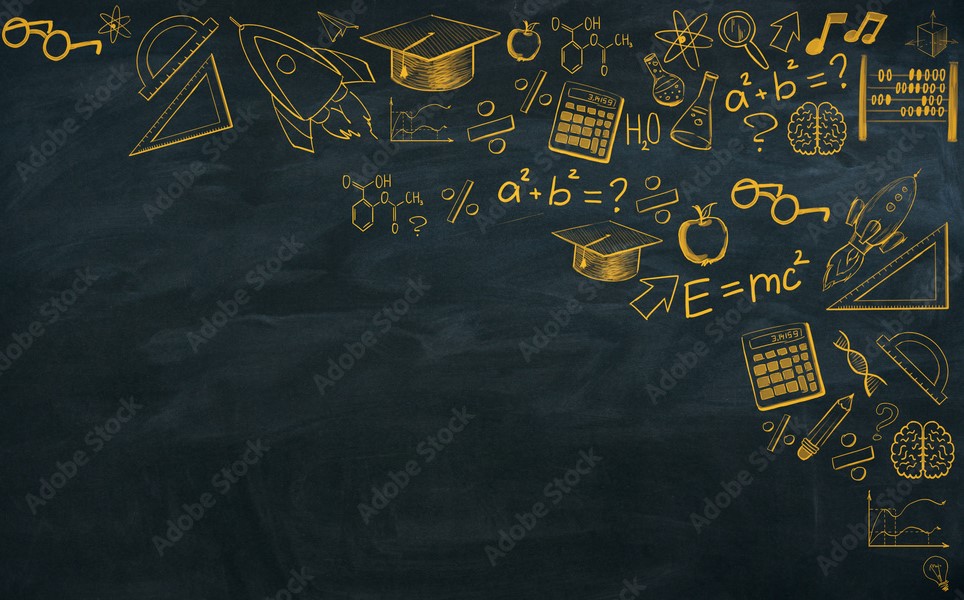 OH
O
O
CH₃
O
3.14159
H₂O
a² + b² = ?
?
OH
O
O
CH₃
O
?
a² + b² = ?
E = mc²
3.14159
?
Adobe Stock